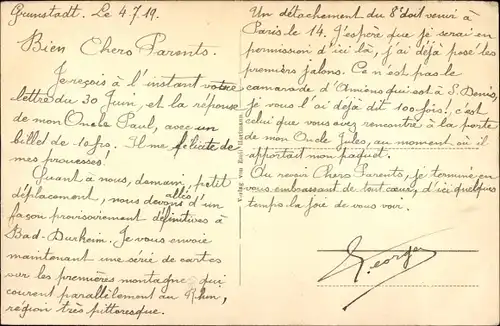 Grunstadt. Le 4.7.19.
Bien Chers Parents.
Je reçois à l'instant votre
lettre du 30 Juin, et la réponse
de mon Oncle Paul, avec un
billet de 10 frs. Il me félicite de
mes prouesses!
Quant à nous, demain, petit
déplacement, nous devons allés d'un
façon provisoirement définitives à
Bad-Durheim. Je vous envoie
maintenant une série de cartes
sur les premières montagnes qui
courent parallèlement au Rhin,
région très pittoresque.
Verlag von Emil Hartmann
Un détachement du 8e doit venir à
Paris le 14. J'espère que je serai en
permission d'ici là, j'ai déjà posé les
premiers jalons. Ce n'est pas le
camarade d'Amiens qui est à S. Denis,
je vous l'ai déjà dit 100 fois! c'est
celui que vous avez rencontré à la porte
de mon Oncle Jules, au moment où il
apportait mon paquet.
Au revoir Chers Parents, je termine en
vous embrassant de tout cœur, d'ici quelques
temps la joie de vous voir.
Georges